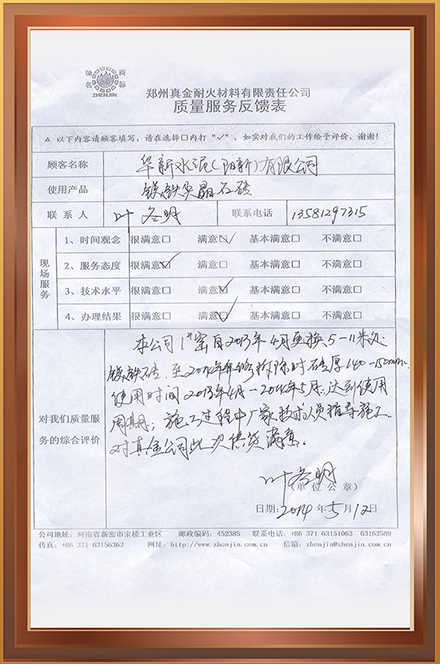 锦名
商标
ZHENJIN
郑州真金耐火材料有限责任公司
质量服务反馈表
▲ 以下内容请顾客填写，请在选择□内打“√”，如实对我们的工作给予评价，谢谢！
顾客名称 华新水泥(阳新)有限公司
使用产品 镁铁尖晶石砖
联系人 叶名明 联系电话 13581297315
现场服务
1、时间观念 很满意□ 满意☑ 基本满意□ 不满意□
2、服务态度 很满意☑ 满意□ 基本满意□ 不满意□
3、技术水平 很满意□ 满意☑ 基本满意□ 不满意□
4、办理结果 很满意□ 满意☑ 基本满意□ 不满意□
对我们质量服务的综合评价
本公司1#窑自2013年4月更换5-11米处
镁铁砖，至2014年年修拆除时砖厚140-150mm.
使用时间2013年4月-2014年5月，达到使用
周期；施工过程中厂家技术人员指导施工
对真金公司此次供货满意。
叶名明
(单位公章)
日期：2014年5月12日
公司地址：河南省新密市宋楼工业区 邮政编码：452385 联系电话：+86 371 63151063 63162589
传真：+86 371 63156363 网址：http://www.zhenjin.com.cn 信箱：zhenjin@zhenjin.com.cn